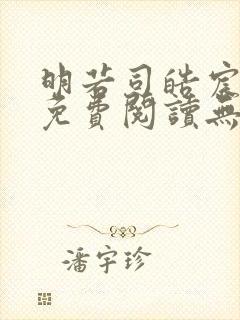 明若司皓宸
免費閱讀無
潘宇珍